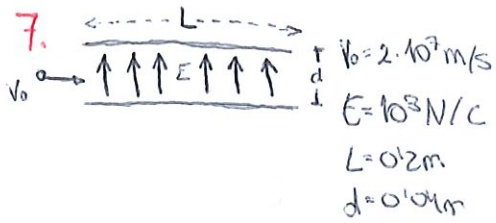 7.
L
V₀
E
d
V₀=2·10⁷m/s
E=10³N/C
L=0'2m
d=0'04m